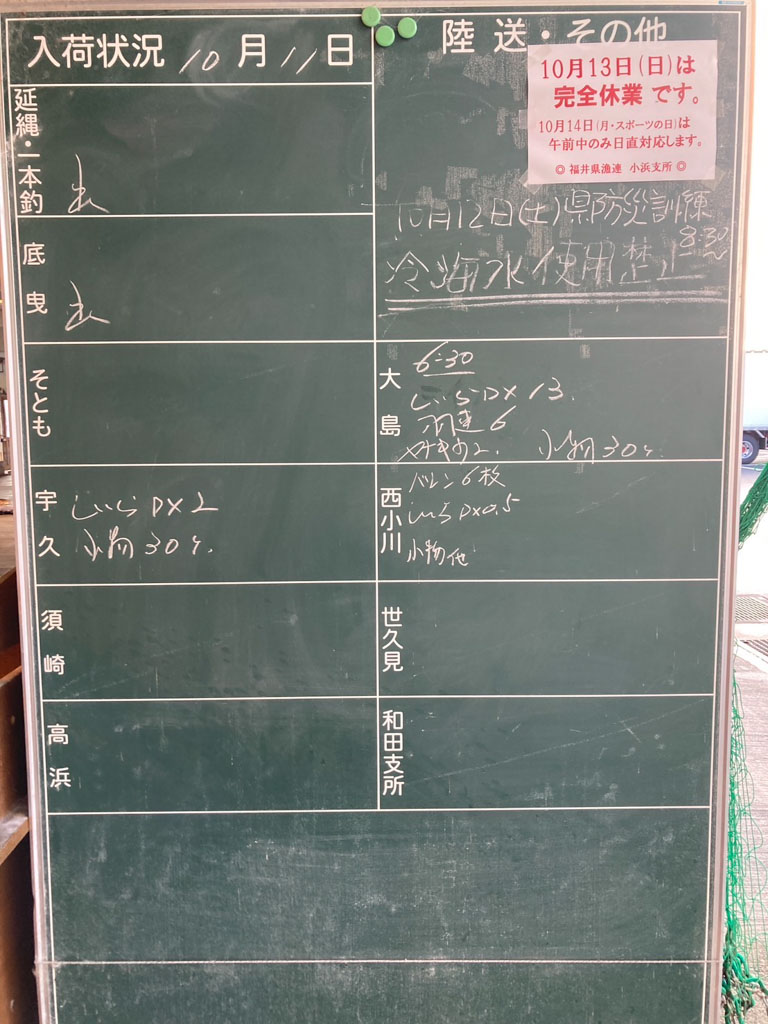 入荷状況 10月11日
陸送・その他
10月13日(日)は
完全休業 です。
10月14日(月・スポーツの日)は
午前中のみ日直対応します。
◎ 福井県漁連 小浜支所 ◎
10月12日(土)県防災訓練
8:30~
冷海水使用禁止
延縄・一本釣
出
底曳
出
そとも
大島
6:30
しいらDX 13.
羽逹 6
小物30ケ.
宇久
しいらDX2
小物30ケ.
西小川
バレン6枚
しいらDX0.5
小物他
須崎
世久見
高浜
和田支所